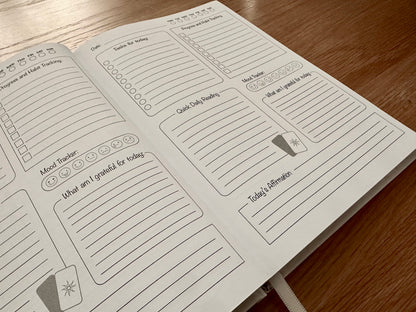 Progress and Habit Tracking
Mood Tracker:
What am I grateful for today
Date:
Tasks for today
Progress and Habit Tracking
Mood Tracker:
What am I grateful for today
Quick Daily Reading
Today's Affirmation